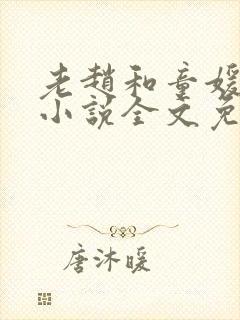 老趙和童媛
小說全文免
唐沐暖